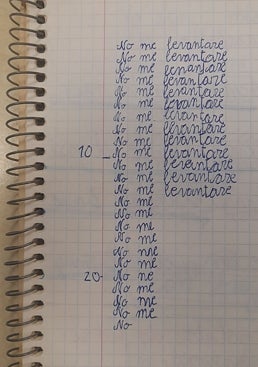 No me levantare
No me levantare
No me levantare
No me levantare
No me levantare
No me levantare
No me levantare
No me levantare
No me levantare
10 No me levantare
No me levantare
No me levantare
No me levantare
No me
No me
No me
No me
No me
No me
20 No me
No me
No me
No me
No